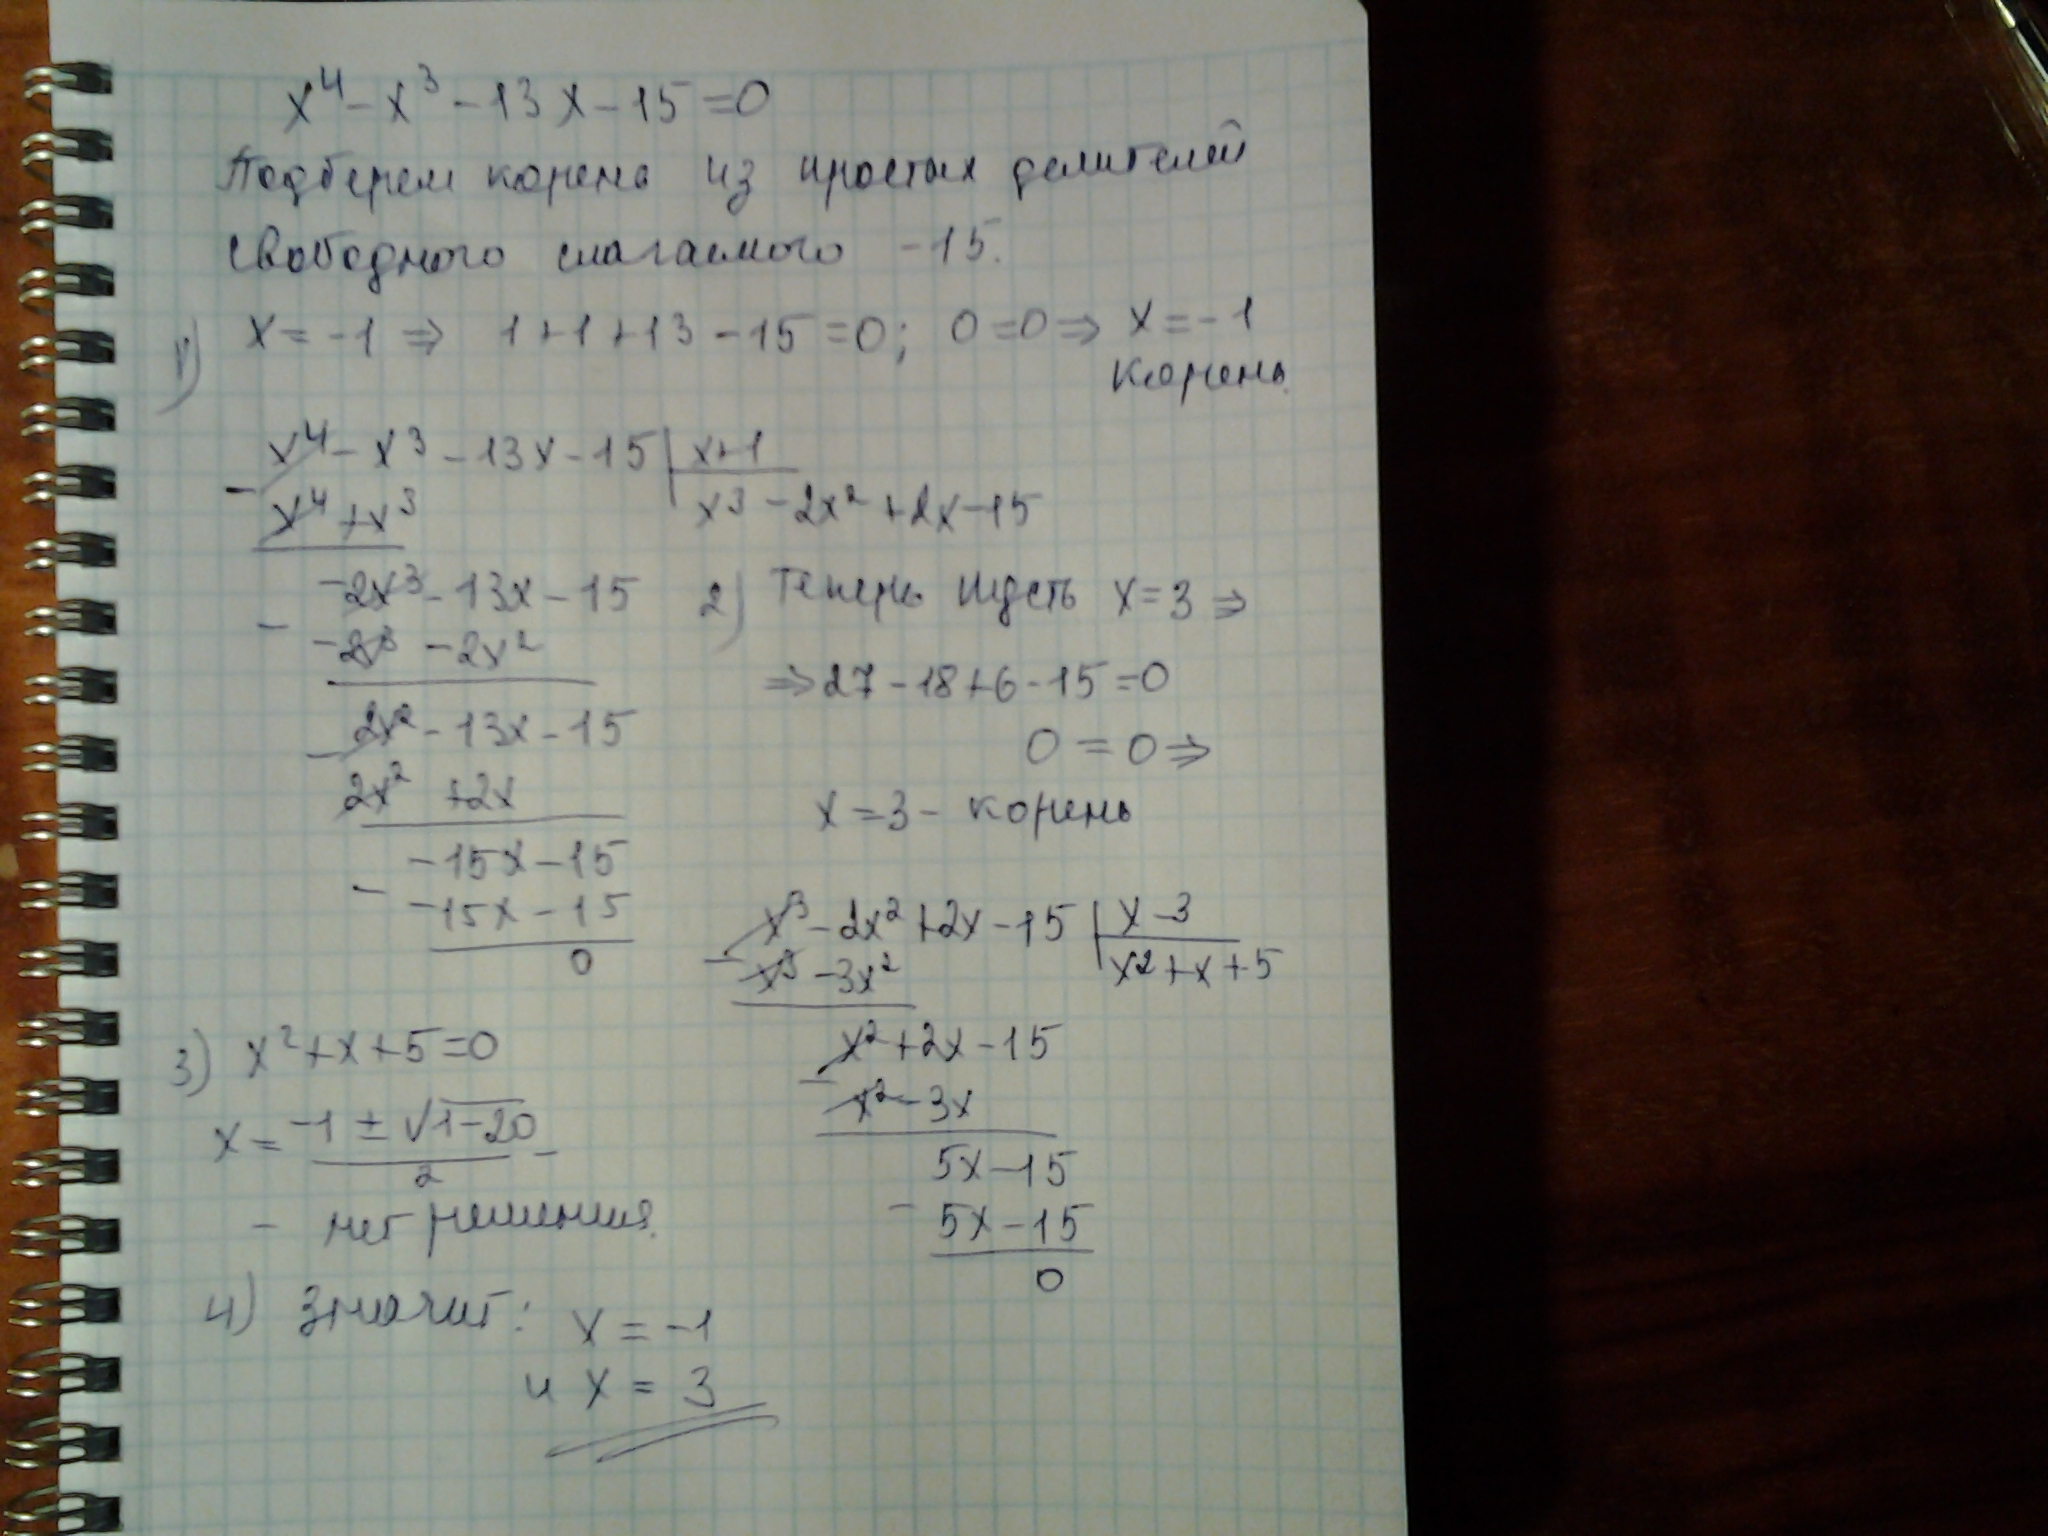 x⁴ - x³ - 13x - 15 = 0
Подберем корень из простых делителей
свободного слагаемого -15.
1) x = -1 ⇒ 1 + 1 + 13 - 15 = 0; 0 = 0 ⇒ x = -1
корень.
x⁴ - x³ - 13x - 15 | x + 1
- x⁴ + x³
x³ - 2x² + 2x - 15
-2x³ - 13x - 15
- -2x³ - 2x²
2x² - 13x - 15
- 2x² + 2x
-15x - 15
- -15x - 15
0
2) Теперь пусть x = 3 ⇒
⇒ 27 - 18 + 6 - 15 = 0
0 = 0 ⇒
x = 3 - корень
x³ - 2x² + 2x - 15 | x - 3
- x³ - 3x²
x² + x + 5
x² + 2x - 15
- x² - 3x
5x - 15
- 5x - 15
0
3) x² + x + 5 = 0
x = (-1 ± √(1 - 20))/2 -
- нет решения.
4) Значит: x = -1
и x = 3